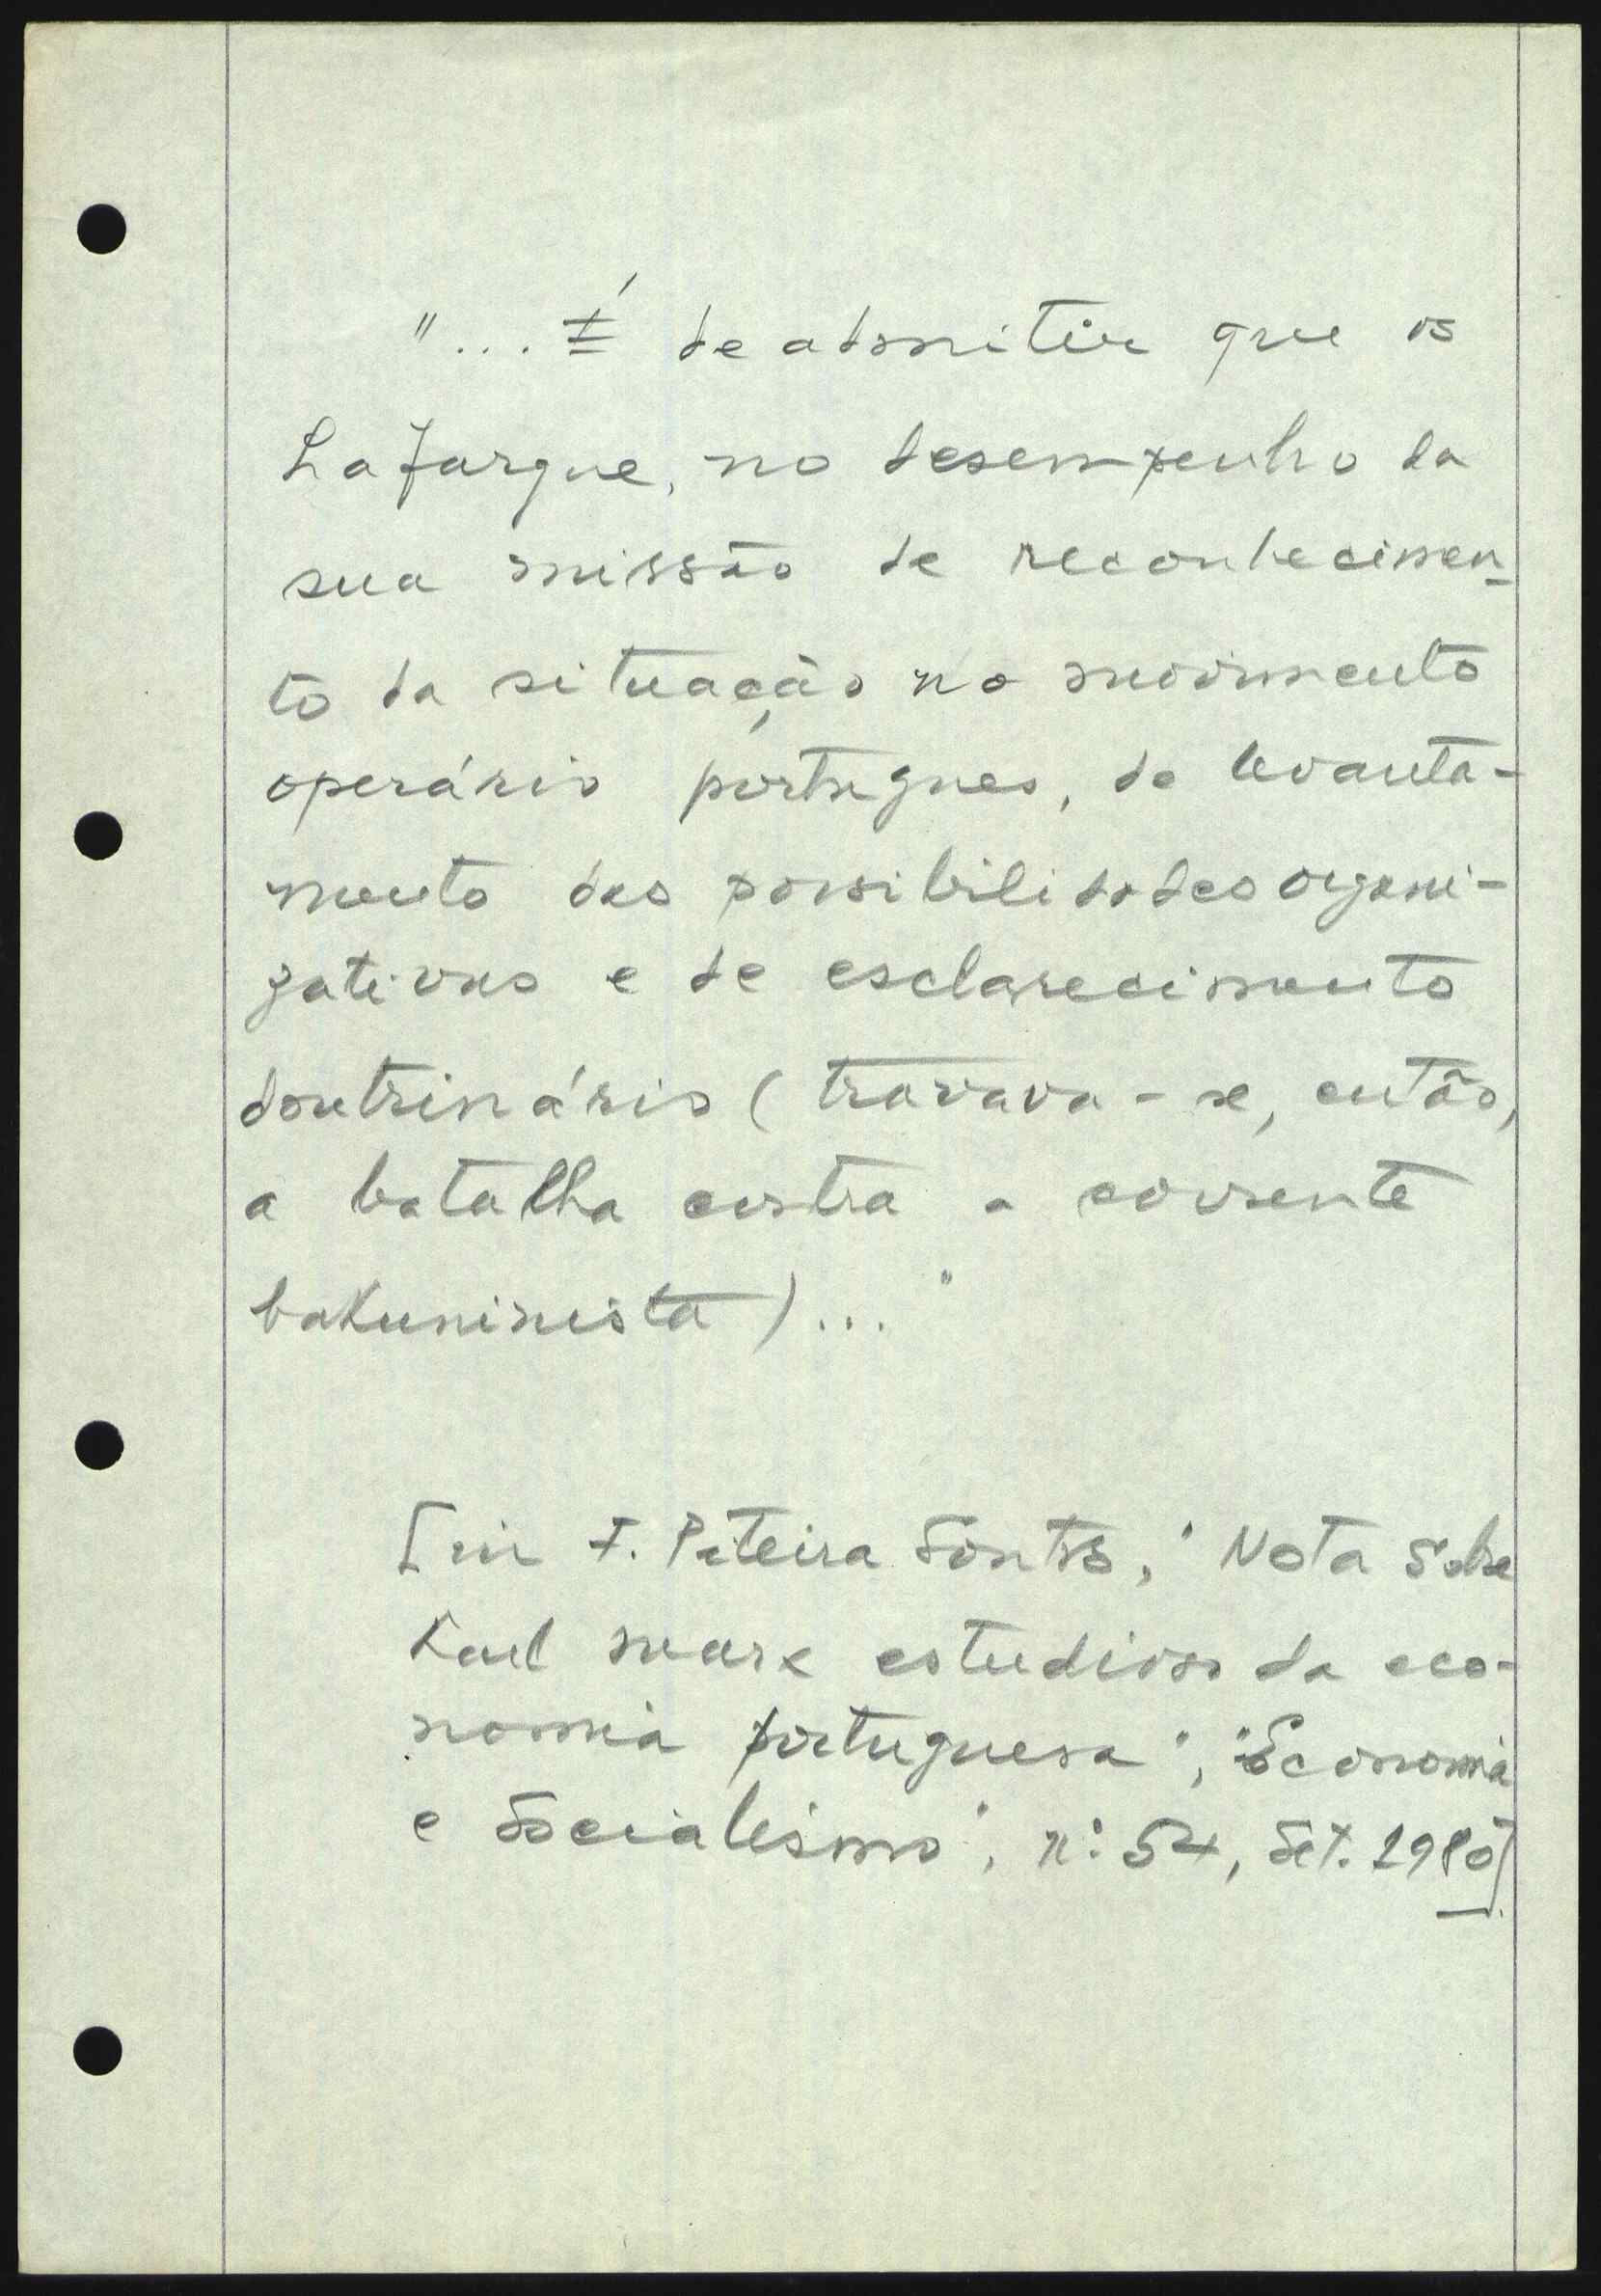 "... É de admitir que os
Lafargue, no desempenho da
sua missão de reconhecimen-
to da situação no movimento
operário portugues, de levanta-
mento das possibilidades organi-
zativas e de esclarecimento
doutrinário (travava-se, então,
a batalha contra a corrente
bakuninista)..."
F. Piteira Santos, "Nota Sobre
Karl Marx estudioso da eco-
nomia portuguesa", "Economia
e Socialismo", nº 54, Set. 1980]